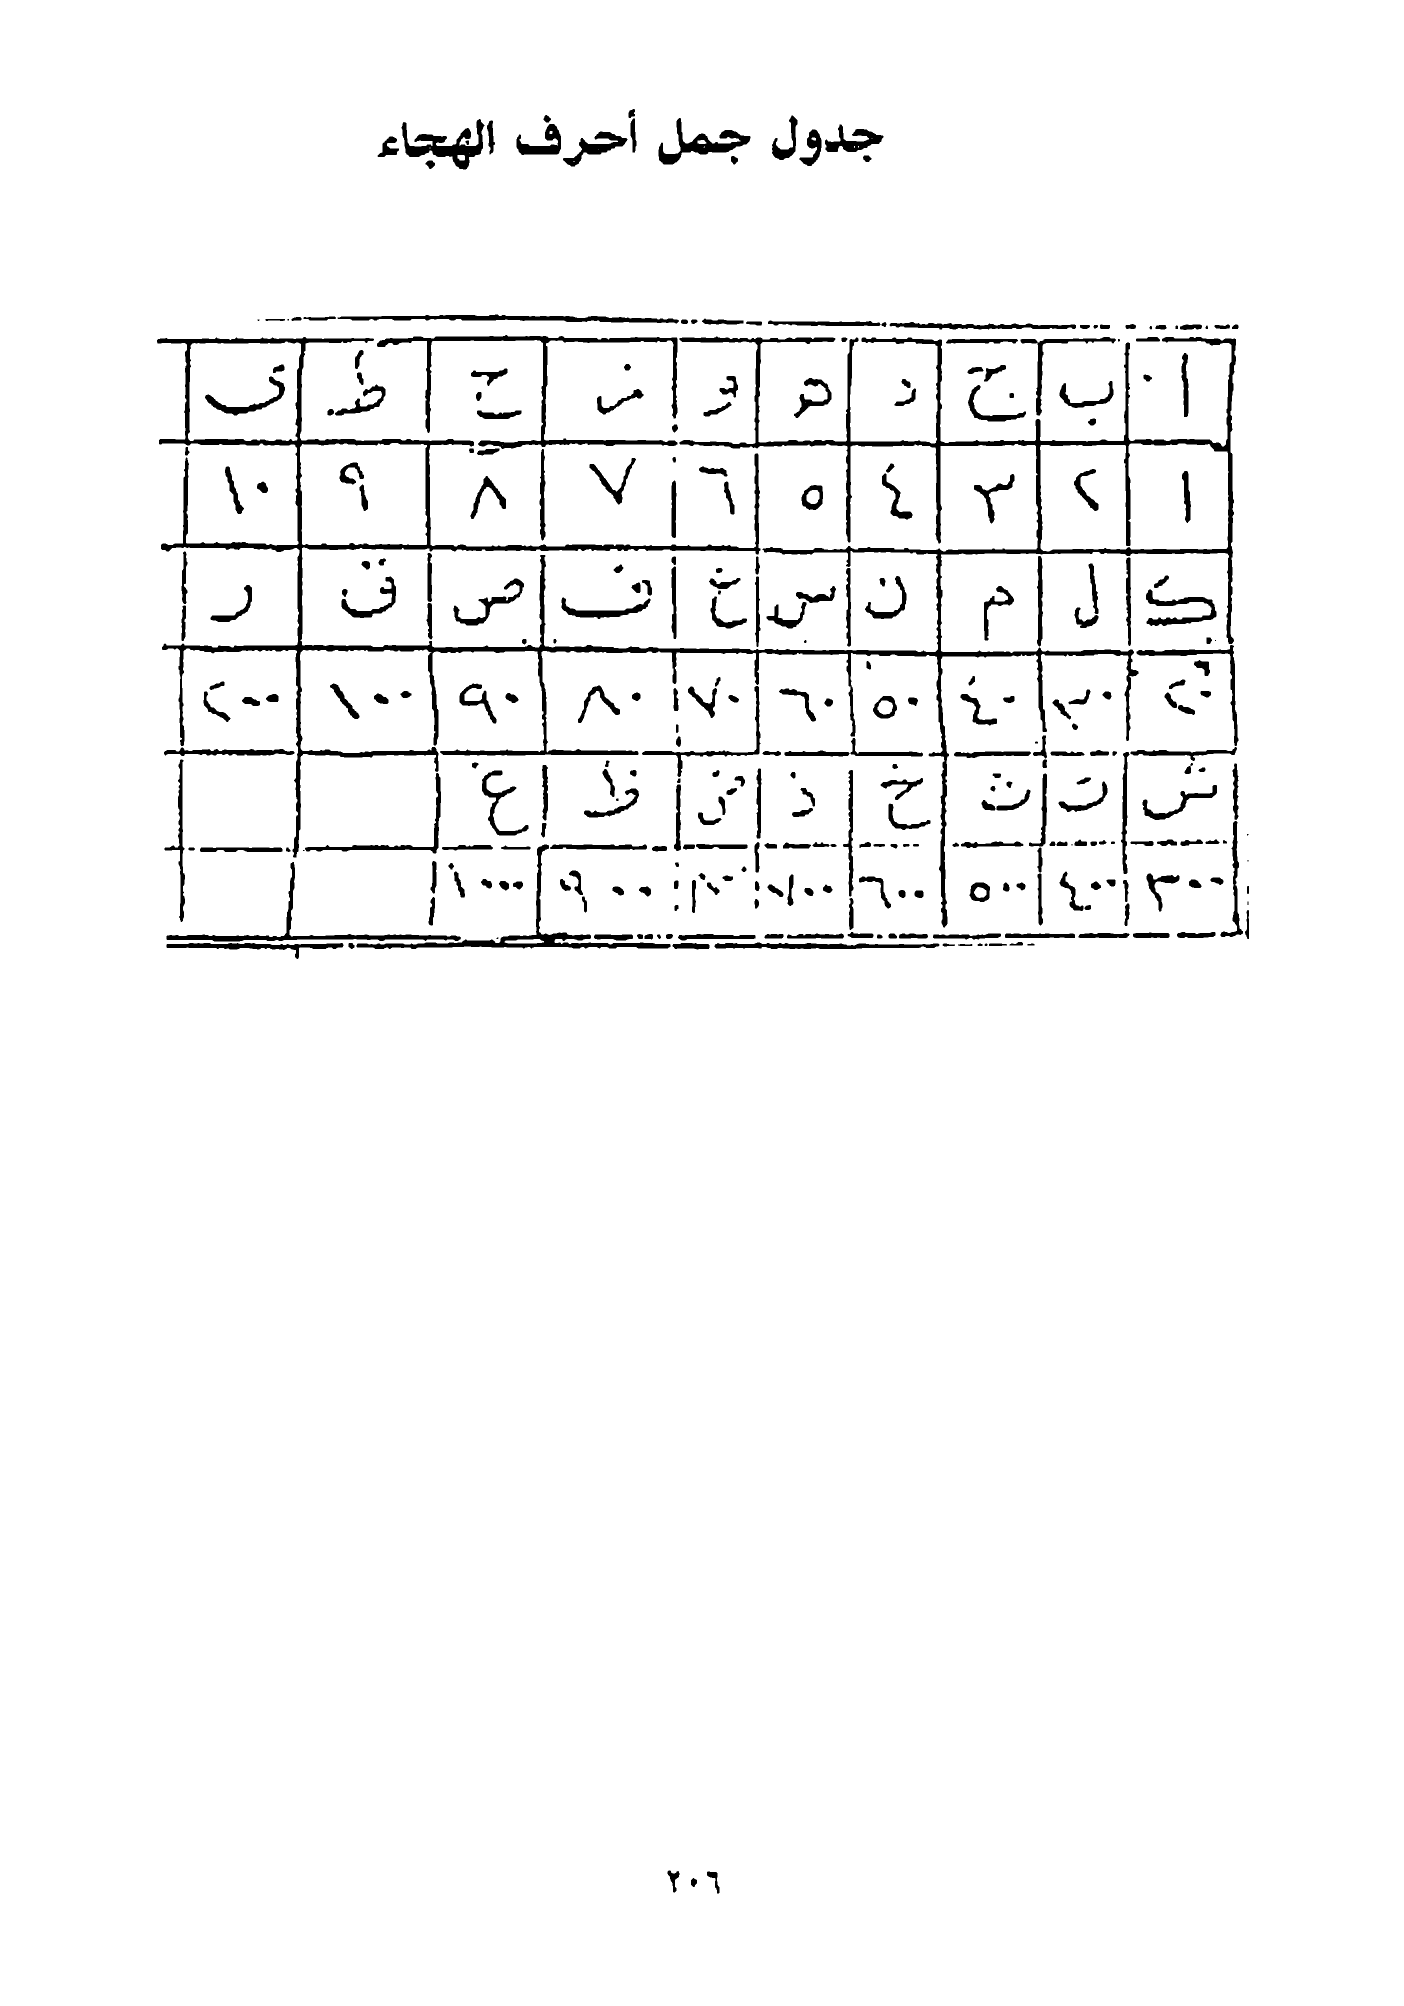 جدول جمل أحرف الهجاء
ا ب ج د هو و ز ح ط ى
١ ٢ ٣ ٤ ٥ ٦ ٧ ٨ ٩ ١٠
ك ل م ن س ع ف ص ق ر
٢٠ ٣٠ ٤٠ ٥٠ ٦٠ ٧٠ ٨٠ ٩٠ ١٠٠ ٢٠٠
ش ت ث خ ذ ض ظ غ
٣٠٠ ٤٠٠ ٥٠٠ ٦٠٠ ٧٠٠ ٩٠٠ ١٠٠٠
٢٠٦